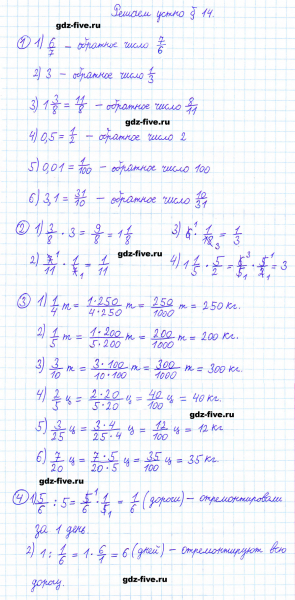 Решаем устно § 14.
gdz-five.ru
gdz-five.ru
① 1) 6/7 – обратное число 7/6
2) 3 – обратное число 1/3
3) 1 3/8 = 11/8 – обратное число 8/11
gdz-five.ru
4) 0,5 = 1/2 – обратное число 2
5) 0,01 = 1/100 – обратное число 100
6) 3,1 = 31/10 – обратное число 10/31
gdz-five.ru
② 1) 3/8 · 3 = 9/8 = 1 1/8
3) 6 · 1/18 = 1/3
2) 7/11 · 1/7 = 1/11
4) 1 1/5 · 5/2 = 6/5 · 5/2 = 3
gdz-five.ru
③ 1) 1/4 т = 1·250/4·250 т = 250/1000 т = 250 кг.
2) 1/5 т = 1·200/5·200 т = 200/1000 т = 200 кг.
3) 3/10 т = 3·100/10·100 т = 300/1000 т = 300 кг.
4) 2/5 ц = 2·20/5·20 ц = 40/100 ц = 40 кг.
gdz-five.ru
5) 3/25 ц = 3·4/25·4 ц = 12/100 ц = 12 кг
6) 7/20 ц = 7·5/20·5 ц = 35/100 ц = 35 кг.
gdz-five.ru
④ 1) 5/6 : 5 = 5/6 · 1/5 = 1/6 (дороги) – отремонтировали
за 1 день.
gdz-five.ru
2) 1 : 1/6 = 1 · 6/1 = 6 (дней) – отремонтируют всю
дорогу.
gdz-five.ru